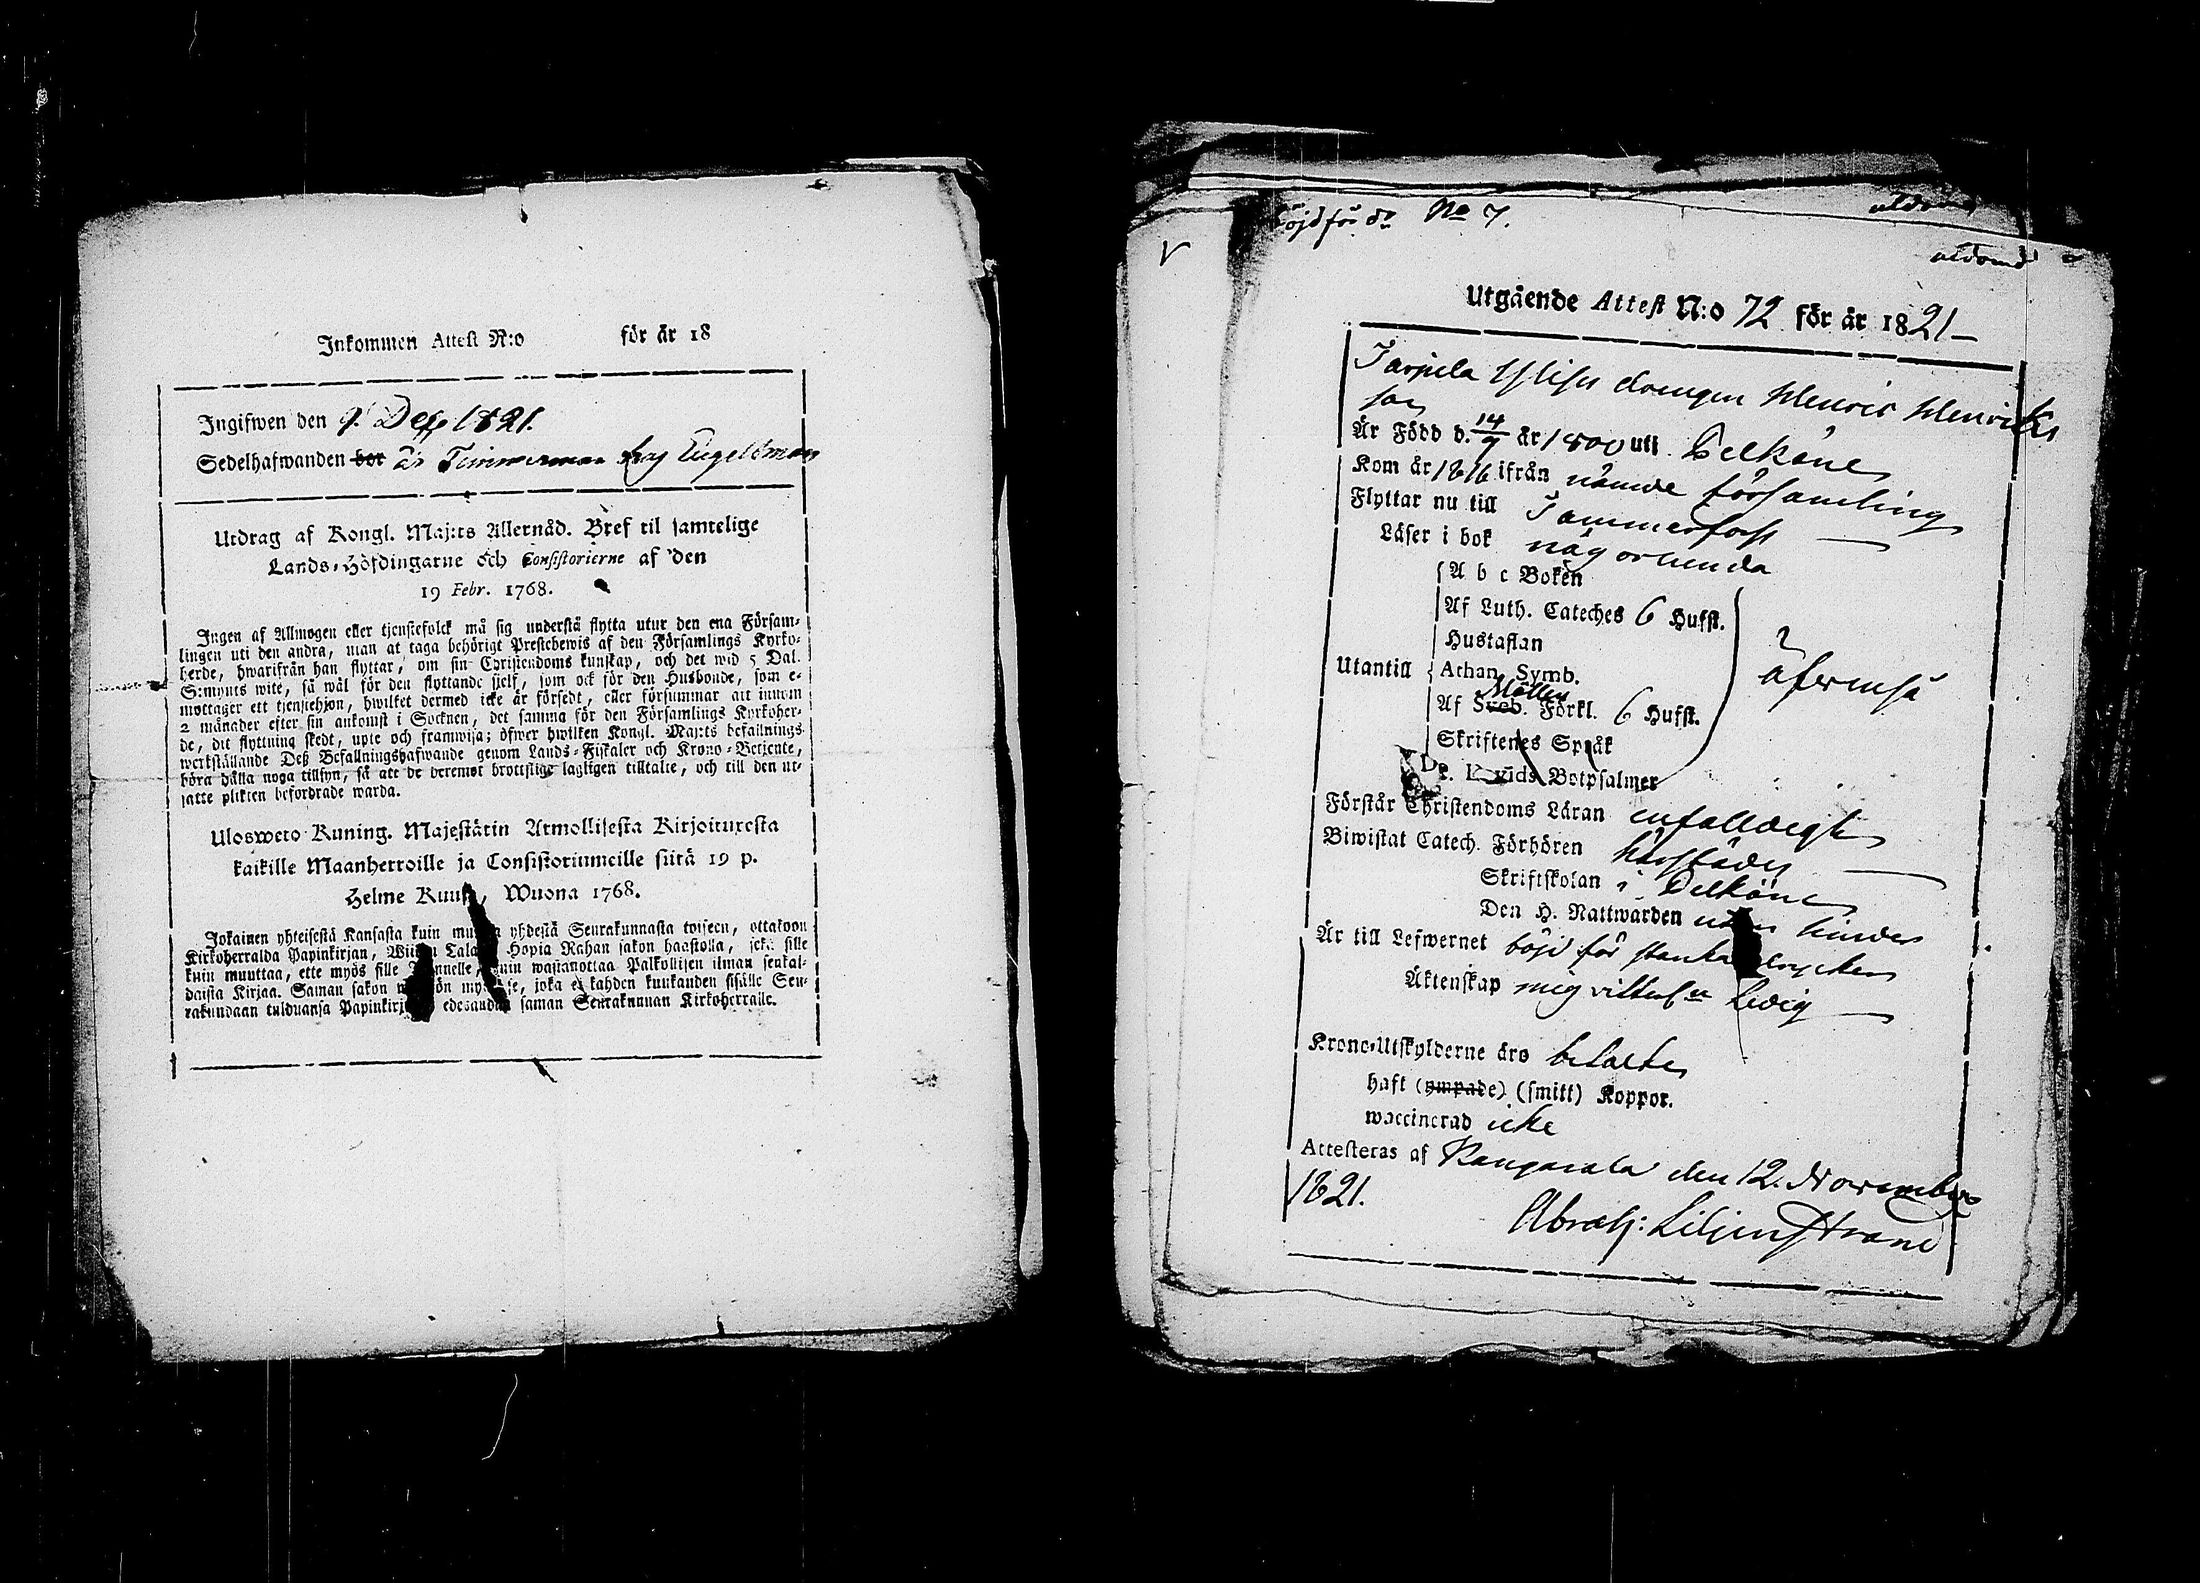 Inkommen Attest N:o för år 18
Ingifwen den 9. Dec 1821.
Sedelhafwanden bor är Timmerman hos Engelsman
Utdrag af Kongl. Maj:ts Allernåd. Bref til samtelige
Lands-Höfdingarne och Consistorierne af den
19 Febr. 1768.
Ingen af Allmogen eller tjenstefolck må sig understå flytta utur den ena Försam-
lingen uti den andra, utan at taga behörigt Prestebewis af den Församlings Kyrko-
herde, hwarifrån han flyttar, om sin Christendoms kunskap, och det wid 5 Dal.
S:mynts wite, så wäl för den flyttande sjelf, som ock för den Husbonde, som e-
mottager ett tjenstehjon, hwilket dermed icke är försedt, eller försummar att innom
2 månader efter sin ankomst i Socknen, det samma för den Församlings Kyrkoher-
de, dit flyttning skedt, upte och framwisa; öfwer hwilken Kongl. Maj:ts befallnings
werkställande Deß Befallningshafwande genom Lands-Fiskaler och Krono-Betjente,
böra hålla noga tillsyn, så att de deremot brottslige lagligen tilltalte, och till den ut-
satte plikten befordrade warda.
Ulosweto Kuning. Majestätin Armollisesta Kirjoituxesta
kaikille Maanherroille ja Consistoriumeille siitä 19 p.
Helme Kuusa, Wuona 1768.
Jokainen yhteisestä Kansasta kuin yhdestä Seurakunnasta toiseen, ottakoon
Kirkoherralda Papinkirjan, Hopia Rahan sakon haastolla, sekä sille
kuin muuttaa, ette myös sille kuin wastanottaa Palkollisen ilman senkal-
daista Kirjaa. Saman sakon joka ei kahden kuukauden sisälle Seu-
rakundaan tulduansa edesanda saman Seurakunnan Kirkoherralle.
No 7.
V
Utgående Attest N:o 72 för år 1821–
Tarpila drengen Henric Henriks
son
Är Född d. 14/9 år 1800 uti Pelkäne
Kom år 1816 ifrån nämde församling
Flyttar nu till Tammerfors
Läser i bok någorlunda
A b c Boken
Af Luth. Cateches 6 Hufst.
Hustaflan
Utantill Athan. Symb.
Möllers
Af Sveb. Förkl. 6 Hufst.
Skriftenes Språk
Davids Botpsalmer
äfwenså
Förstår Christendoms Läran enfaldigt
Biwistat Catech. Förhören härstädes
Skriftskolan i Pelkäne
Den H. Nattwarden utan hinder
Är till Lefwernet böjd för starka drycker
Äktenskap mig vitterl:n Ledig
Krono-Utskylderne äro betalte
haft (ympade) (smitt) Koppor.
waccinerad icke
Attesteras af Kangasala den 12. November
1821.
Abrah: Liljenstrand